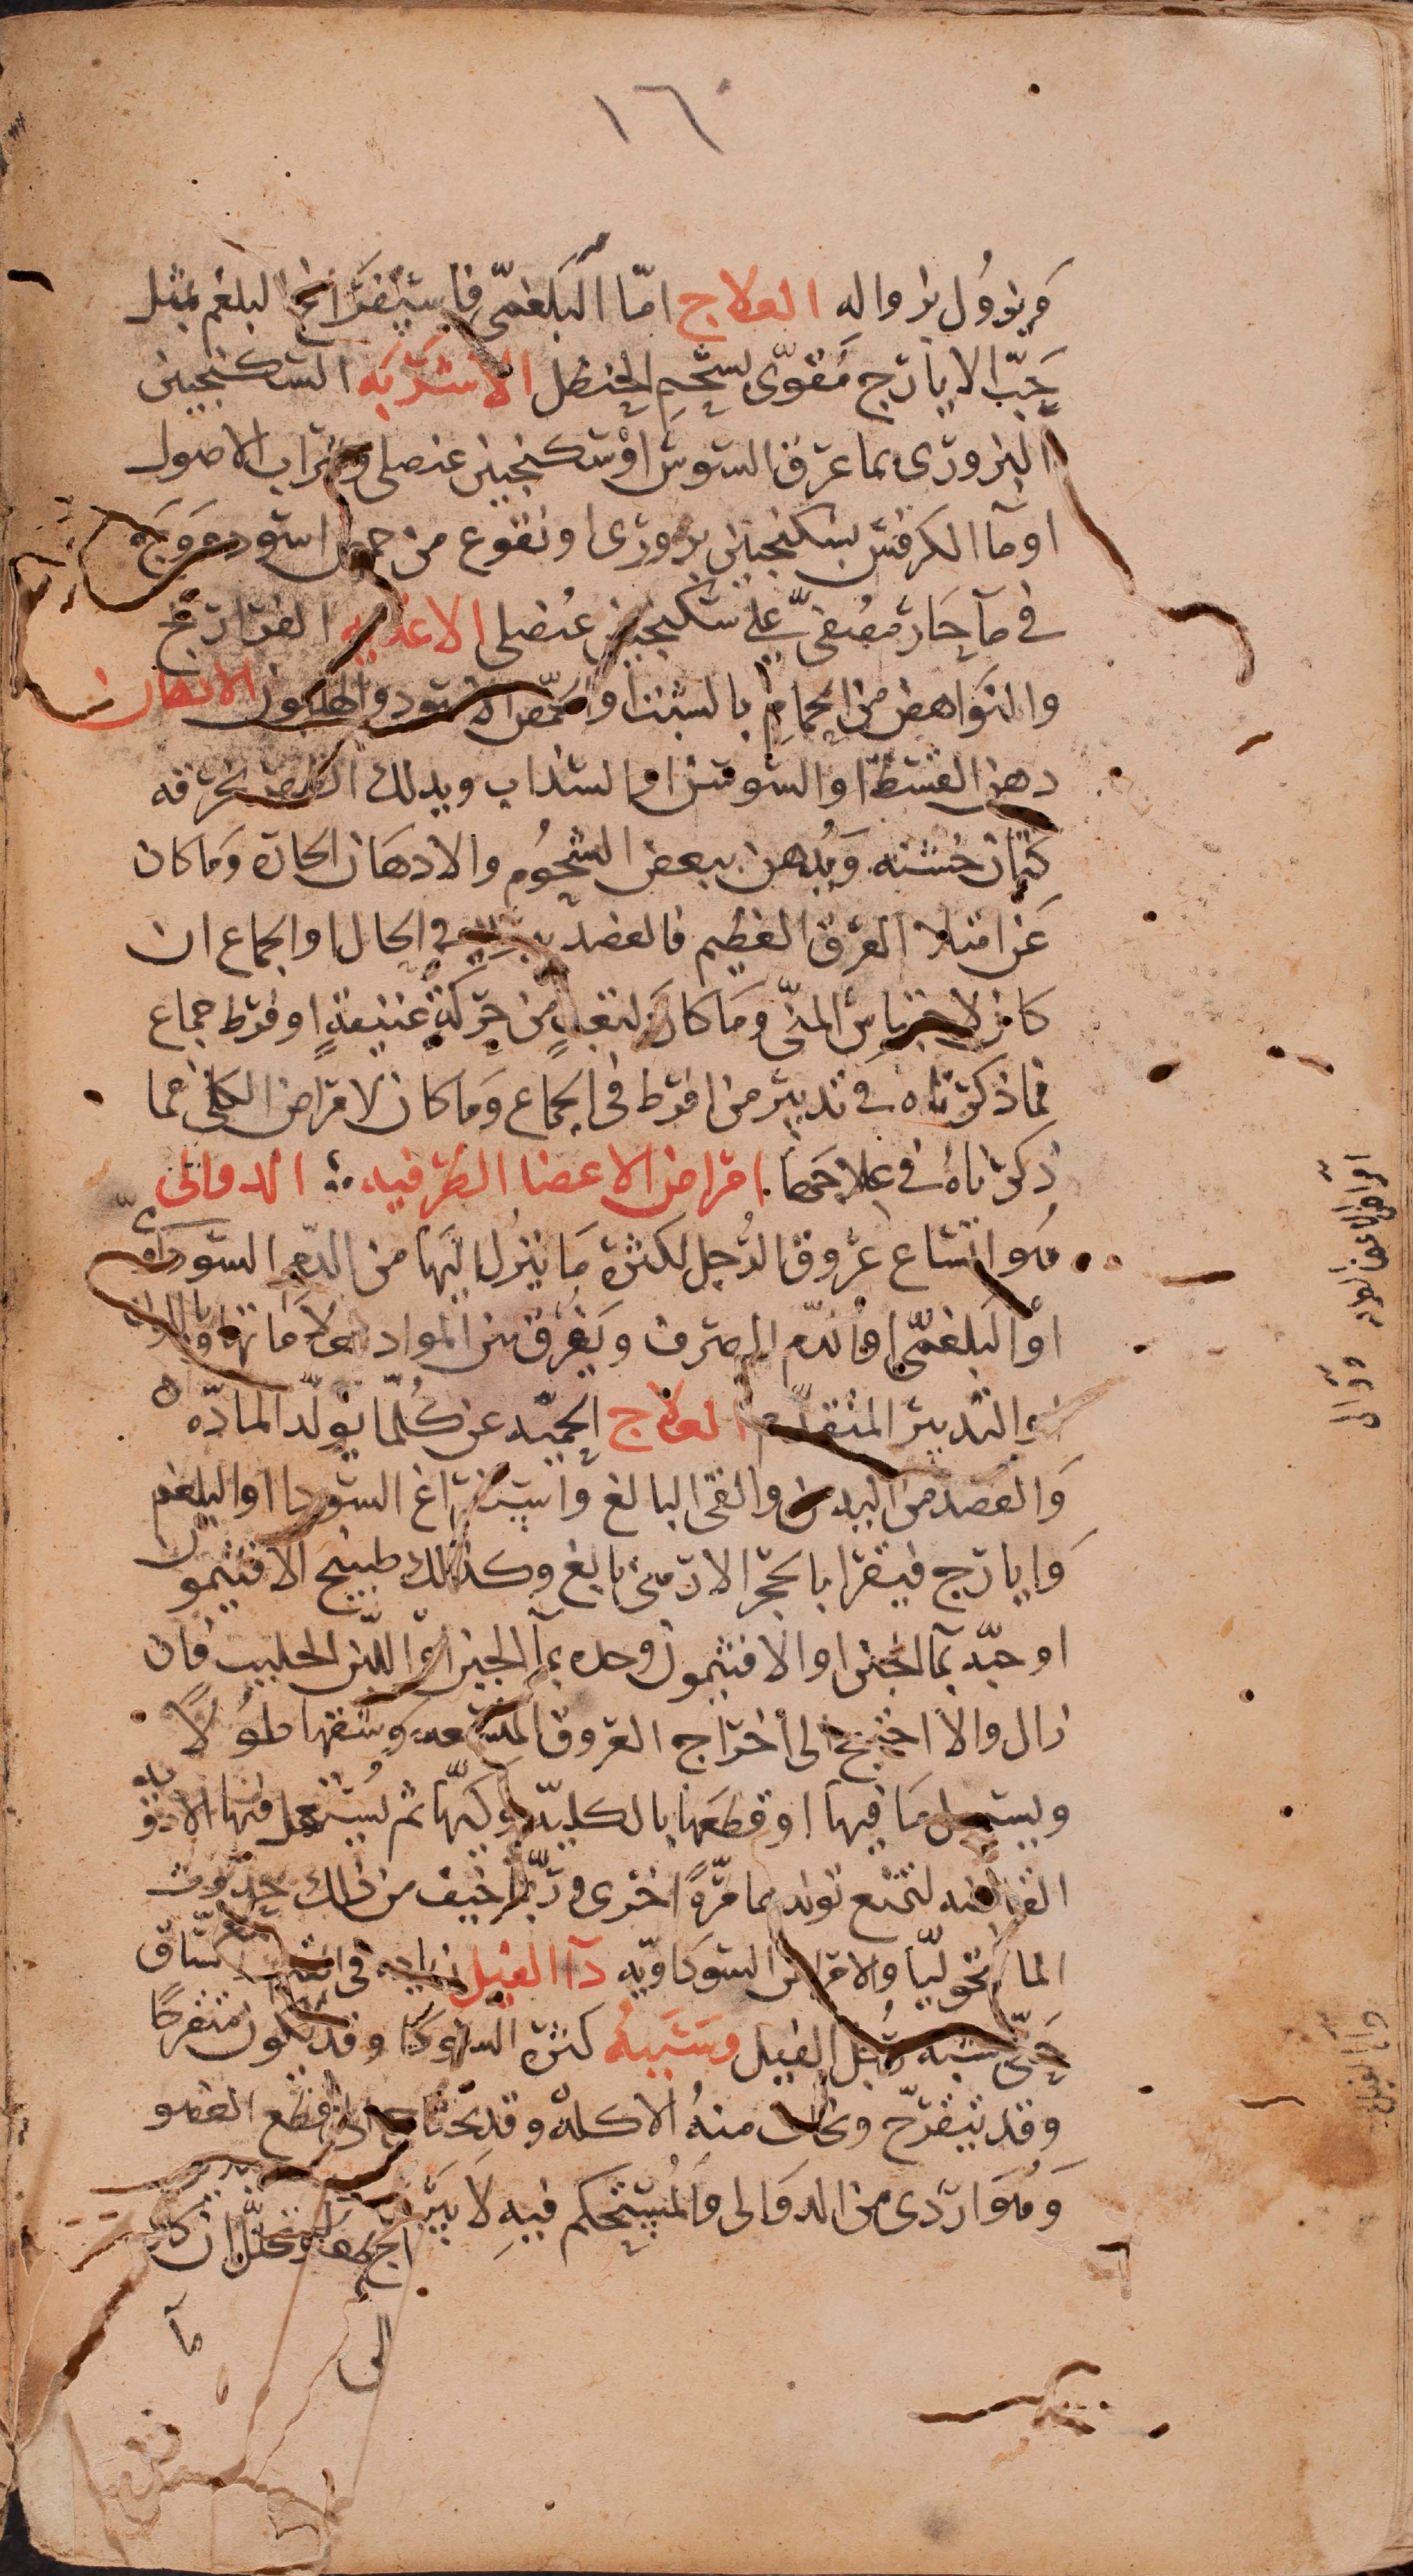 ١٦٠
ويزول بزواله العلاج اما البلغمي فاستفراغ البلغم بمثل
حب الايارج مقوى بشحم الحنظل الاشربه السكنجبين
البزورى بما عرق السوس او سكنجبين عنصلى وشراب الاصول
او ماء الكرفس بسكنجبين بزورى او نقوع من حمص اسود
فى ماء حار مصفى على سكنجبين عنصلى الاغذيه الفراريج
والنواهض من الحمام بالشبث او الحمص الاسود والهليون الادهان
دهن القسط او السوسن او السذاب ويدلك بخرقه
كتان خشنه ويدهن ببعض الشحوم والادهان الحارة وما كان
عن امتلا العرق العظيم فالفصد فى الحال او الجماع ان
كان لاحتباس المنى وما كان لتعب من حركة عنيفة او فرط جماع
فما ذكرناه فى تدبير من افرط فى الجماع وما كان لامراض الكلى فما
ذكرناه فى علاجها امراض الاعضا الطرفيه الدوالى
هو اتساع عروق الرجل لكثرة ما ينزل اليها من الدم السوداوى
او البلغمى او الدم الصرف ويفرق بين المواد بعلاماتها وبالوان
والتدبير المتقدم العلاج الحميه عن كلما يولد المادة
والفصد من اليدين والقى البالغ واستفراغ السودا او البلغم
وايارج فيقرا بالحجر الارمنى بالغ وكذلك طبيخ الافتيمون
او حبه بماء الجبن او الافتيمون وحده بماء الجبن او اللبن الحليب فان
زال والا احتيج الى اخراج العروق المتسعه وشقها طولا
ويستيل ما فيها او قطعها بالكلية وكيها ثم يستعمل فيها الادويه
القابضه لتمنع تولدها مرة اخرى وربما خيف من ذلك حدوث
الماليخوليا والامراض السوداويه داء الفيل زياده فى الساق
حتى تشبه رجل الفيل وسببه كثرة السودا وقد يكون متقرحا
وقد يتقرح ويخاف منه الاكلة وقد يحتاج الى قطع العضو
وهو اردى من الدوالى والمستحكم فيه لا يبرا
ان كان
الى
ما